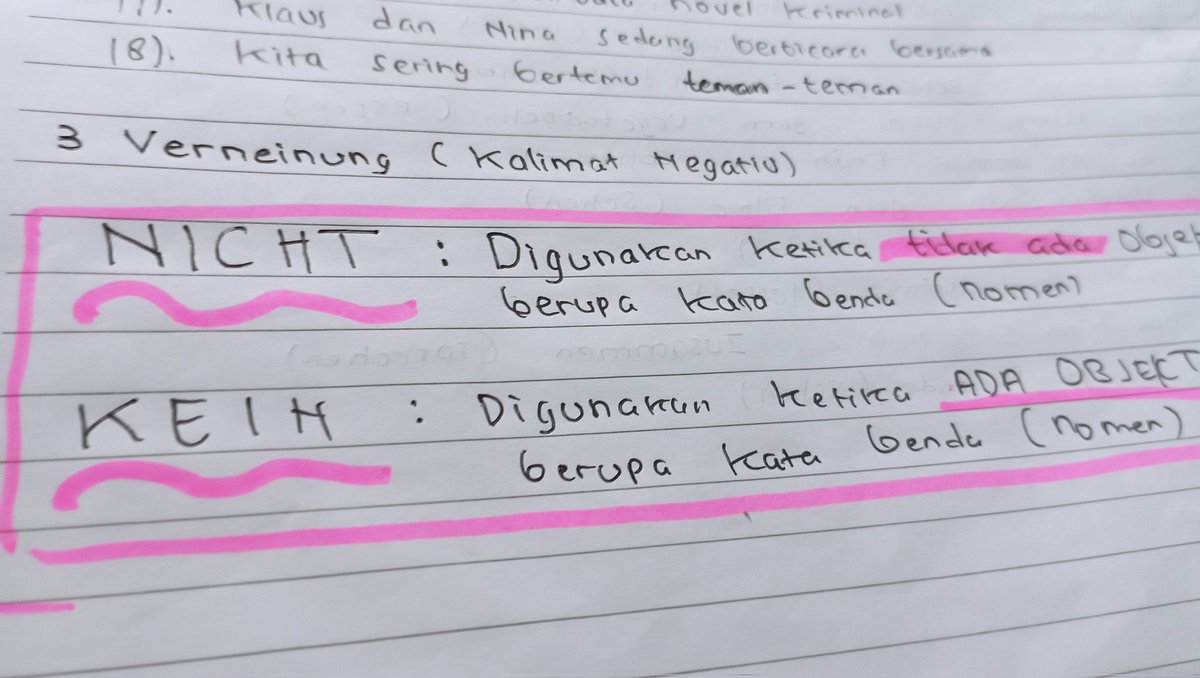 Klaus dan Nina sedang berbicara bersama
18). Kita sering bertemu teman-teman
3 Verneinung (Kalimat Negativ)
NICHT : Digunakan ketika tidak ada Objek
berupa kata benda (nomen)
KEIN : Digunakan ketika ADA OBJEKT
berupa kata benda (nomen)